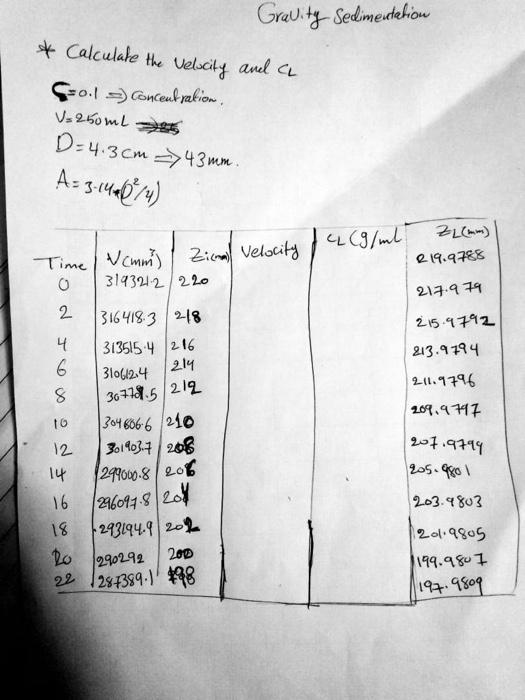 Gravity Sedimentation
* Calculate the Velocity and CL
C=0.1 => Concentration.
V=250mL
D=4.3cm => 43mm.
A=3.14*(D²/4)
Time V(mm³) Zi(mm) Velocity CL(g/ml ZL(mm)
0 319321.2 220 219.9788
2 316418.3 218 217.979
4 313515.4 216 215.9792
6 310612.4 214 213.9794
8 212 211.9796
10 304806.6 210 209.9797
12 301903.7 208 207.9799
14 299000.8 206 205.9801
16 296097.8 204 203.9803
18 293194.9 202 201.9805
20 290292 200 199.9807
22 287389.1 198 197.9809